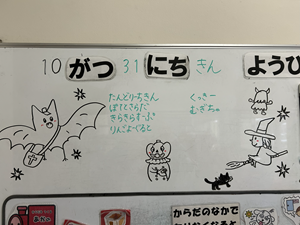 10 がつ 31 にち きん ようび
たんどりーちきん
ぽてとさらだ
きらきらすーぷ
りんごよーぐると
くっきー
むぎちゃ
からだのなかで